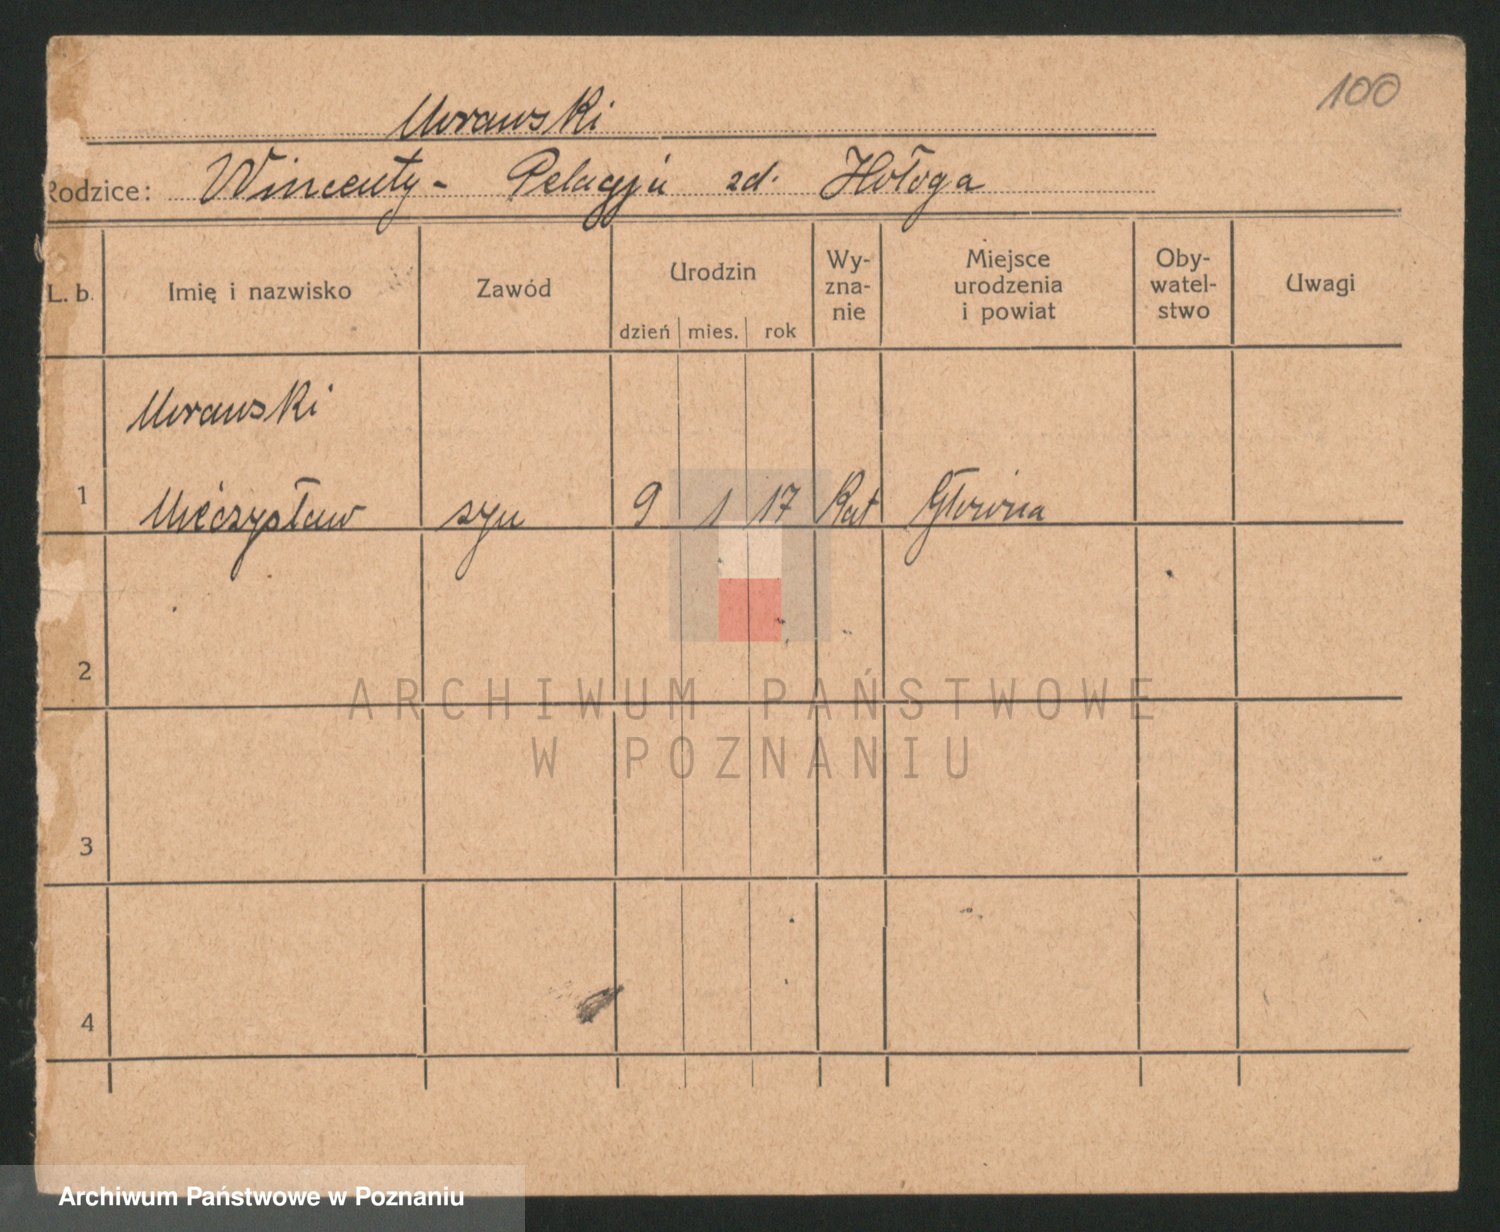 100
Morawski
Rodzice: Wincenty - Pelagja zd. Hołoga
L. b. Imię i nazwisko Zawód Urodzin dzień mies. rok Wy-zna-nie Miejsce urodzenia i powiat Oby-watel-stwo Uwagi
Morawski
1 Mieczysław syn 9 1 17 Kat Główna
2
ARCHIWUM PAŃSTWOWE
W POZNANIU
3
4
Archiwum Państwowe w Poznaniu